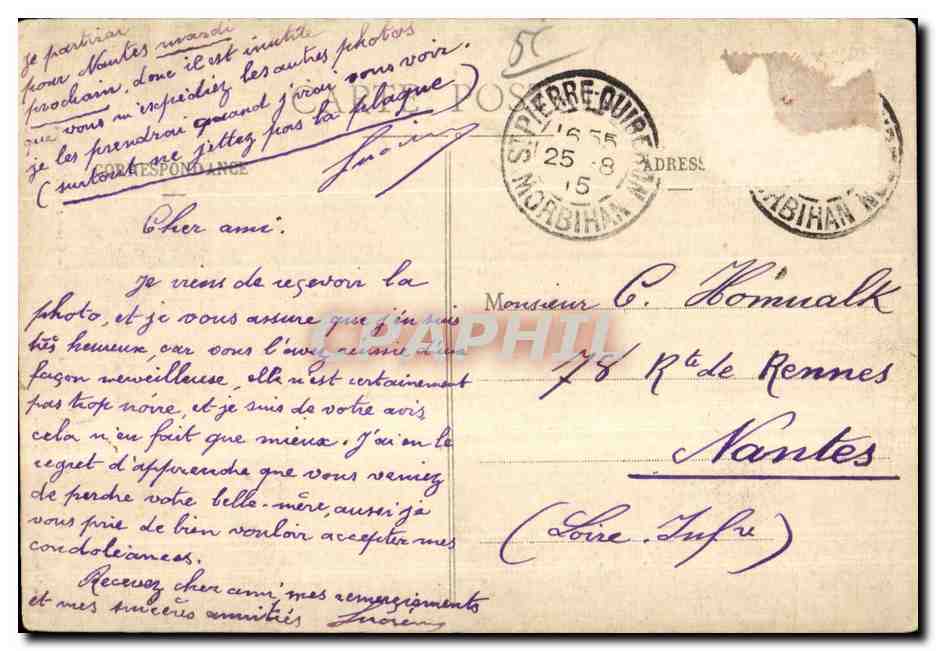 Je partirai
pour Nantes mardi
prochain, donc il est inutile
que vous m'expédiez les autres photos
je les prendrai quand j'irai vous voir.
(surtout ne jettez pas la plaque)
CARTE POS
CORRESPONDANCE
ADRESS
5c
ST PIERRE-QUIBERON
16 55
25 -8
15
MORBIHAN
RBIHAN
Cher ami.
Je viens de reçevoir la
photo, et je vous assure que j'en suis
très heureux, car vous l'avez d'une
façon merveilleuse, elle n'est certainement
pas trop noire, et je suis de votre avis
cela n'en fait que mieux. J'ai eu le
regret d'apprendre que vous veniez
de perdre votre belle-mère, aussi je
vous prie de bien vouloir accepter mes
condoléances.
Recevez cher ami, mes remerçiements
et mes sincères amitiés
Monsieur C.
78 Rte de Rennes
Nantes
(Loire-Infre)
CPAPHIL